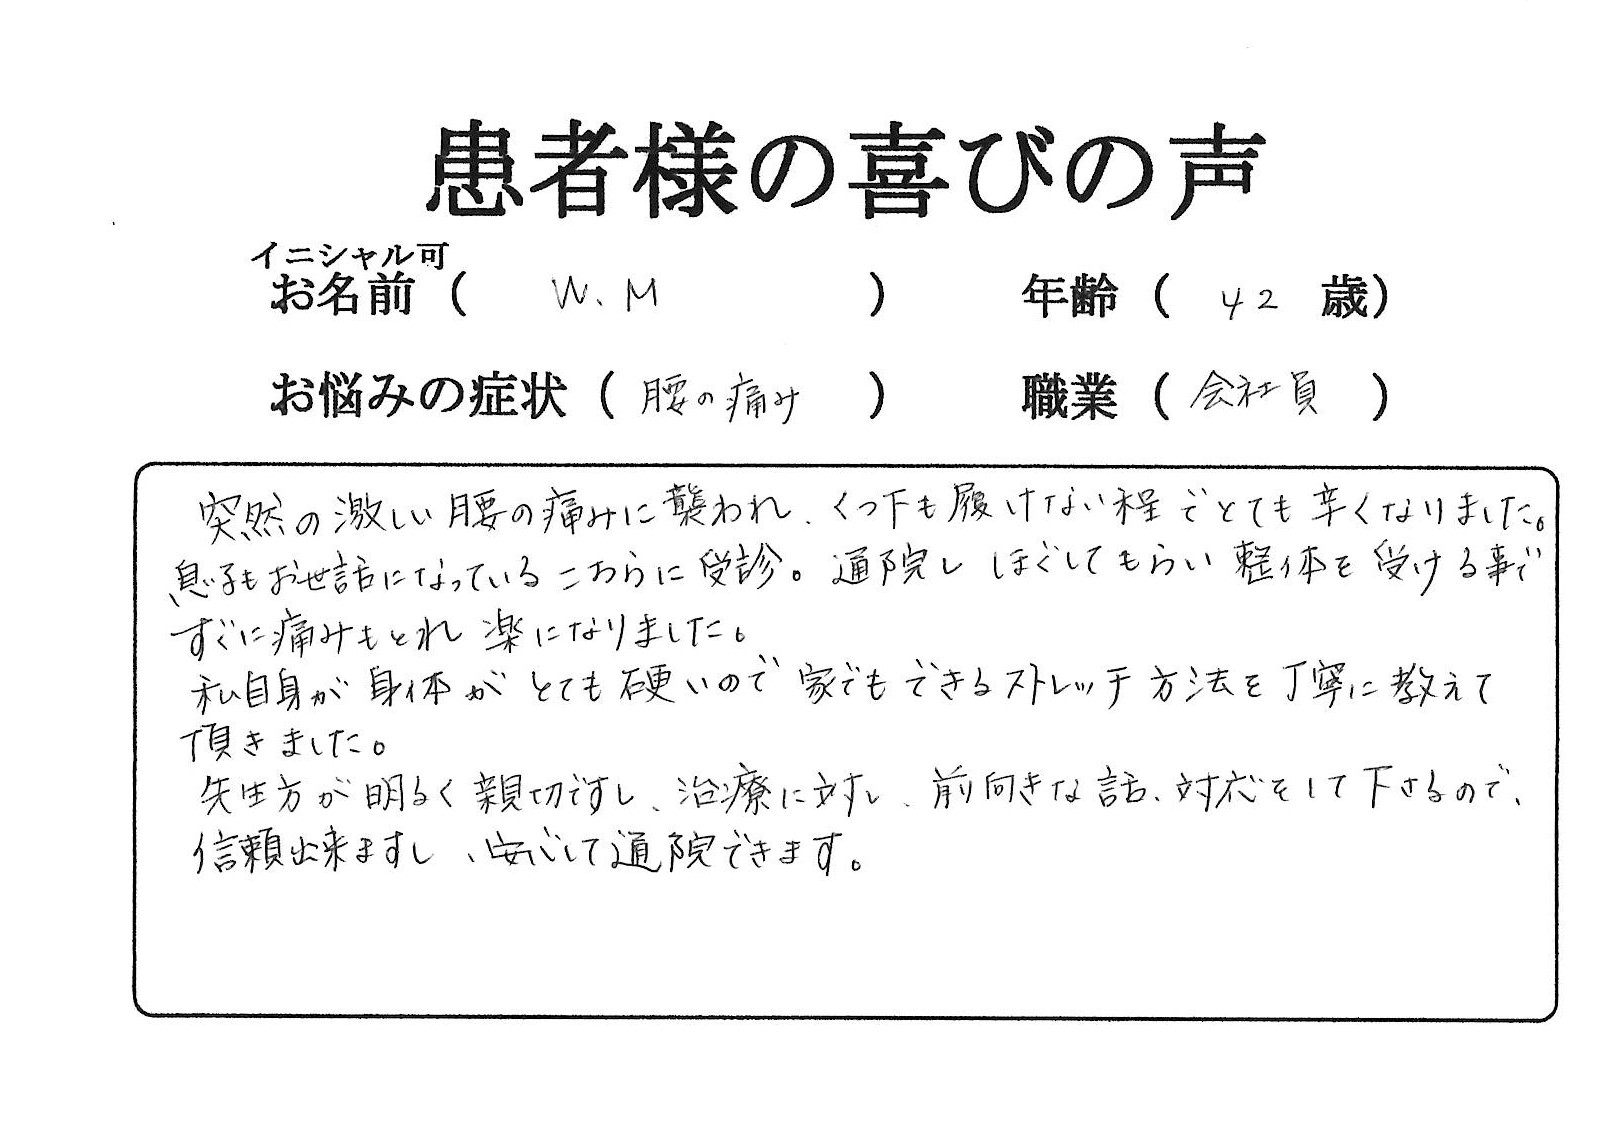 患者様の喜びの声
イニシャル可
お名前 ( W.M ) 年齢 ( 42 歳)
お悩みの症状 ( 腰の痛み ) 職業 ( 会社員 )
突然の激しい腰の痛みに襲われ、くつ下も履けない程でとても辛くなりました。
息子もお世話になっているこちらに受診。通院しほぐしてもらい整体を受ける事で
すぐに痛みもとれ楽になりました。
私自身が身体がとても硬いので家でもできるストレッチ方法を丁寧に教えて
頂きました。
先生方が明るく親切ですし、治療に対し、前向きな話、対応をして下さるので、
信頼出来ますし、安心して通院できます。